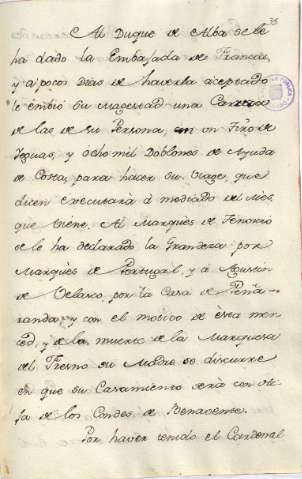 35
Al Duque de Alba se le
ha dado la Embajada de Francia,
y a pocos dias de haverla aceptado
le embió su Magestad una
de las de su Persona, con un Tiro de
Yeguas, y ocho mil Doblones de Ayuda
de Costa, para hacer su Viage, que
dicen executará á mediado del Mes,
que viene. Al Marqués de Tenorio
se le ha declarado la Grandeza por
Marqués de Portugal, y á Agustin
de Velasco por la Casa de Peña-
randa; y con el motivo de esta mer-
ced, y de la muerte de la Marquesa
del Fresno su Madre se discurre
en que su Casamiento será con hi-
ja de los Condes de Benavente.
Por haver tenido el Cardenal